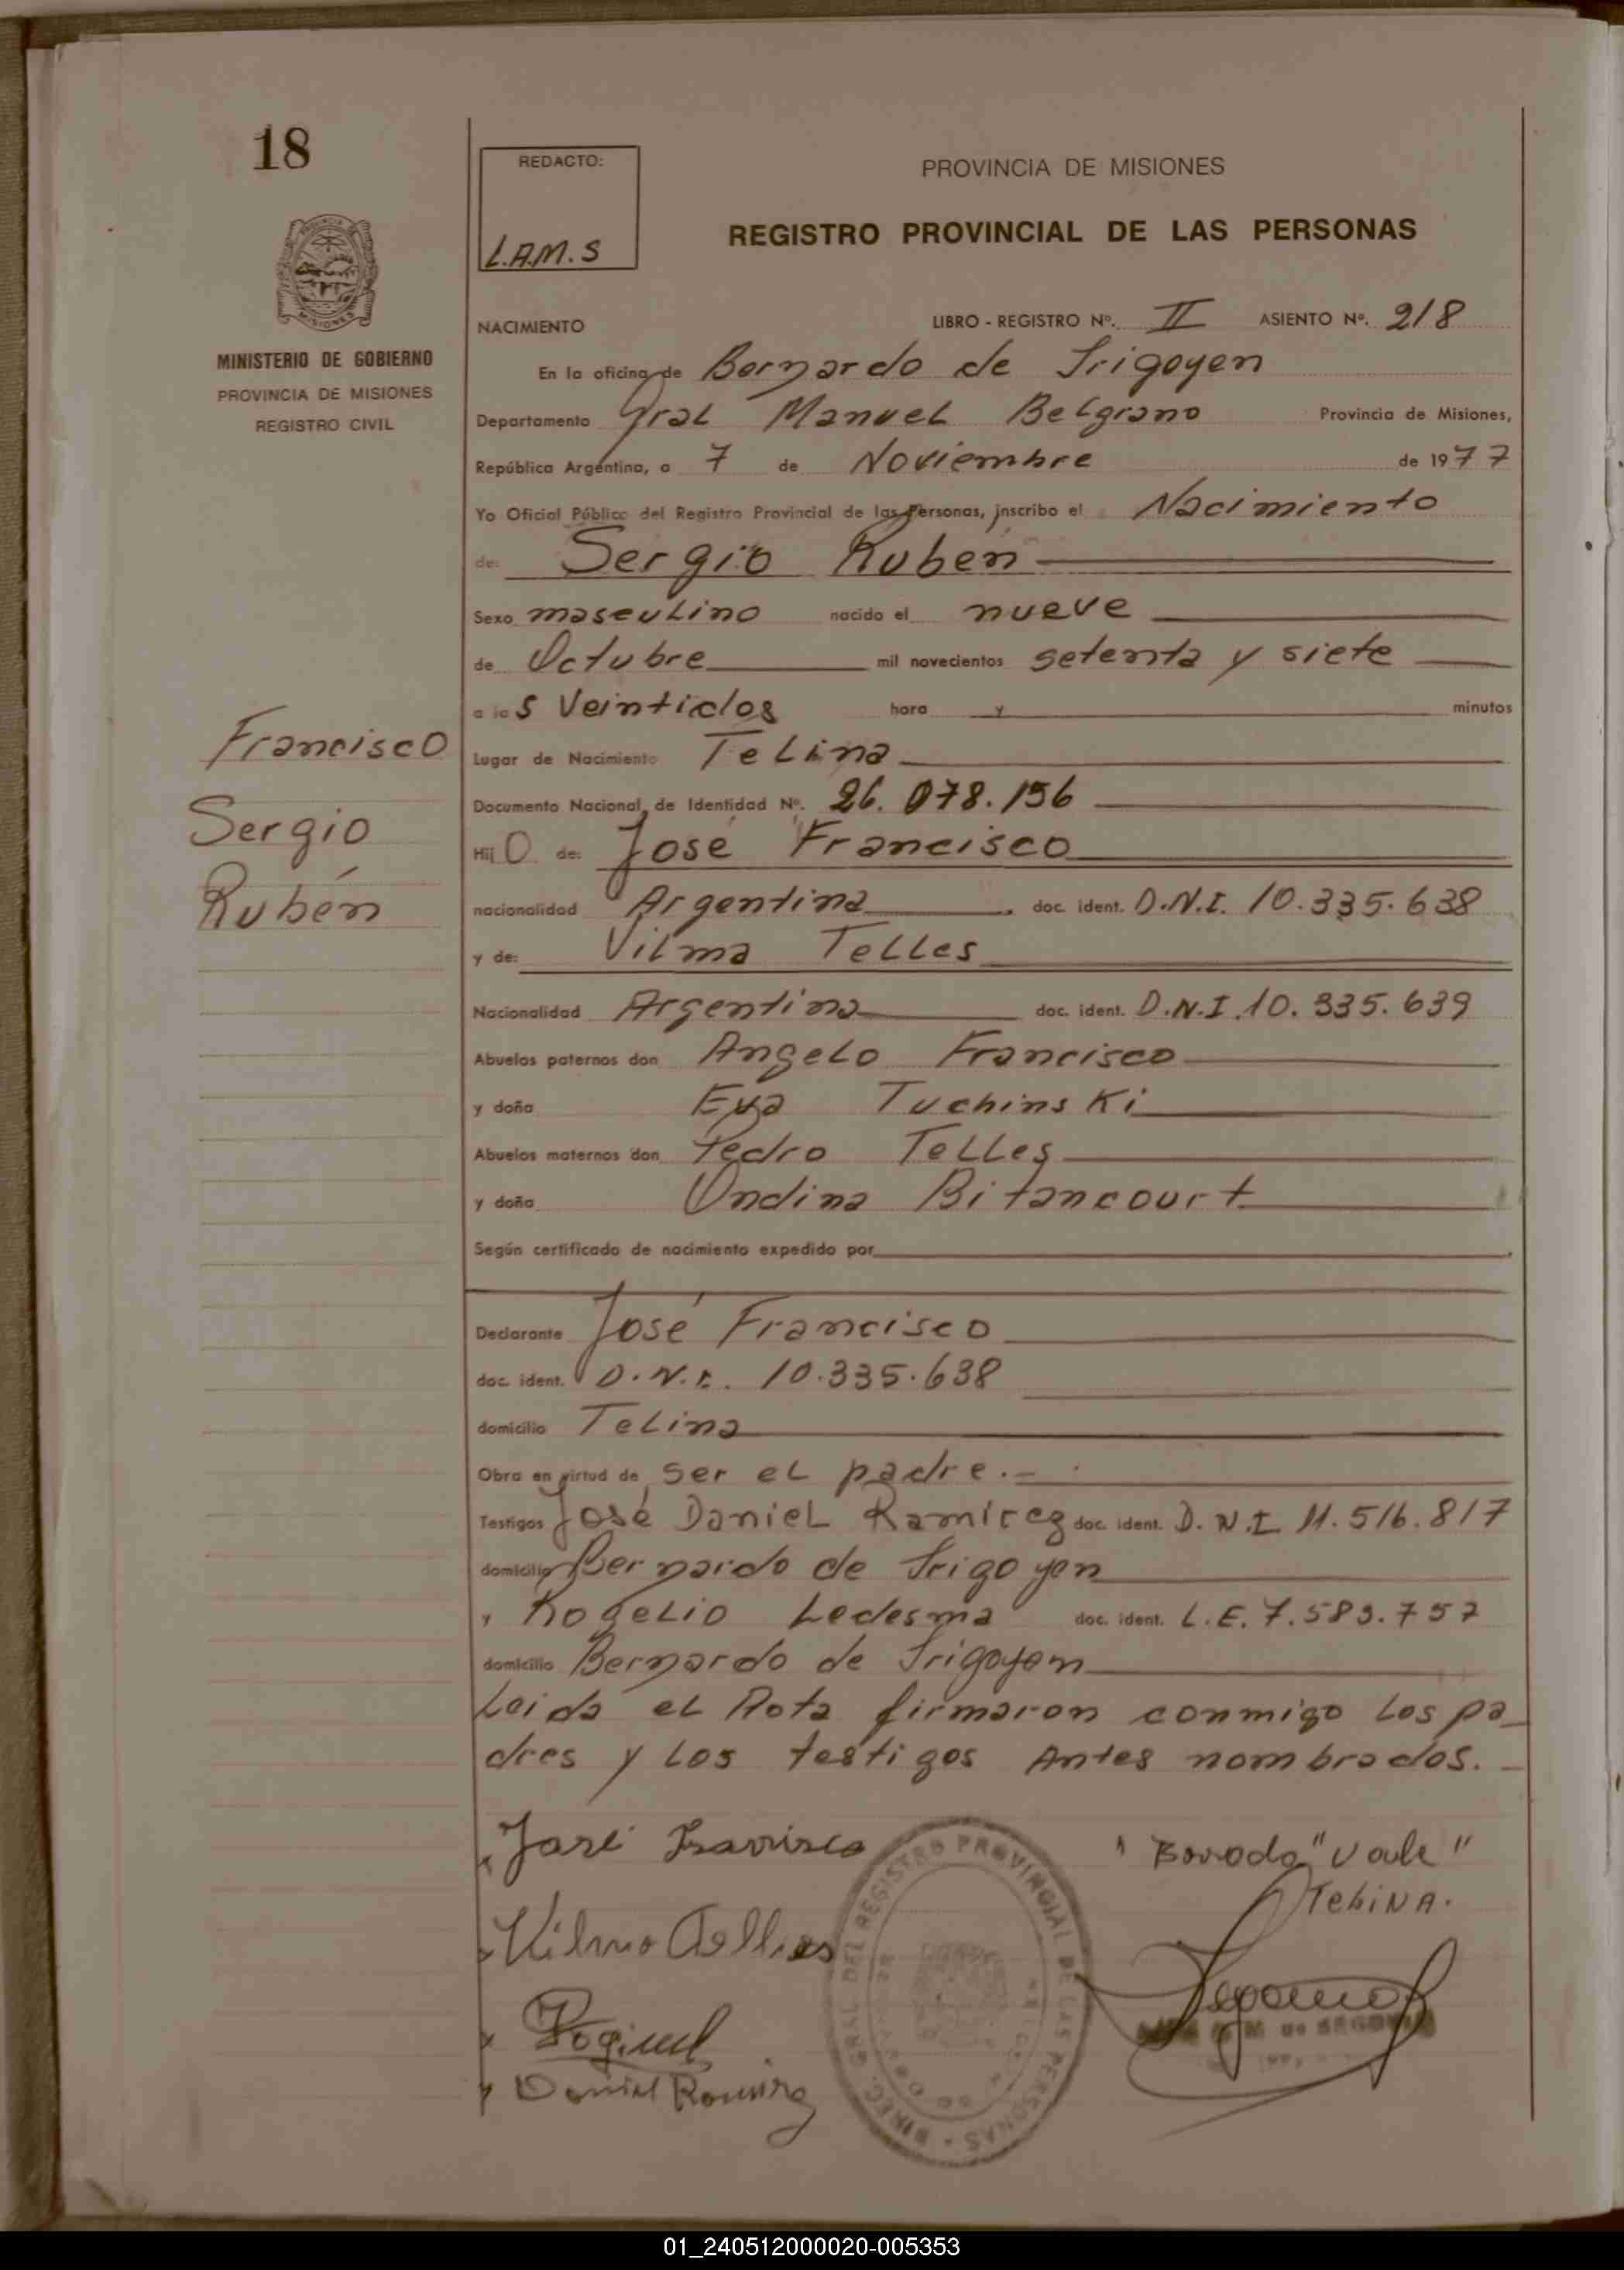 18
REDACTO:
L.A.M.S
PROVINCIA DE MISIONES
REGISTRO PROVINCIAL DE LAS PERSONAS
MISIONES
MINISTERIO DE GOBIERNO
PROVINCIA DE MISIONES
REGISTRO CIVIL
NACIMIENTO LIBRO - REGISTRO Nº. II ASIENTO Nº. 218
En la oficina de Bernardo de Irigoyen
Departamento Gral Manuel Belgrano Provincia de Misiones,
República Argentina, a 7 de Noviembre de 1977
Yo Oficial Público del Registro Provincial de las Personas, inscribo el Nacimiento
de: Sergio Rubén
Sexo masculino nacido el nueve
de Octubre mil novecientos setenta y siete
a las Veintidos hora y minutos
Francisco
Sergio
Rubén
Lugar de Nacimiento Telina
Documento Nacional de Identidad Nº. 26.078.156
Hijo de: José Francisco
nacionalidad Argentina doc. ident. D.N.I. 10.335.638
y de: Vilma Telles
Nacionalidad Argentina doc. ident. D.N.I. 10.335.639
Abuelos paternos don Angelo Francisco
y doña Eva Tuchinski
Abuelos maternos don Pedro Telles
y doña Undina Bitancourt
Según certificado de nacimiento expedido por
Declarante José Francisco
doc. ident. D.N.I. 10.335.638
domicilio Telina
Obra en virtud de ser el padre.-
Testigos José Daniel Ramirez doc. ident. D.N.I 11.516.817
domicilio Bernardo de Irigoyen
y Rogelio Ledesma doc. ident. L.E. 7.583.757
domicilio Bernardo de Irigoyen
Leida el Acta firmaron conmigo los pa-
dres y los testigos Antes nombrados.-
José Francisco
"Borrado" "vale"
Telina.
Vilma Telles
Daniel Ramirez
DIREC. GRAL. DEL REGISTRO PROVINCIAL DE LAS PERSONAS
01_240512000020-005353